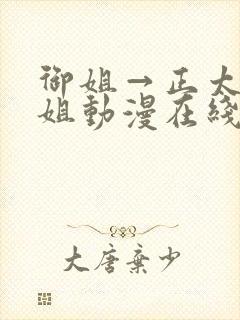 御姐→正太
姐動漫在綫
大唐棄少